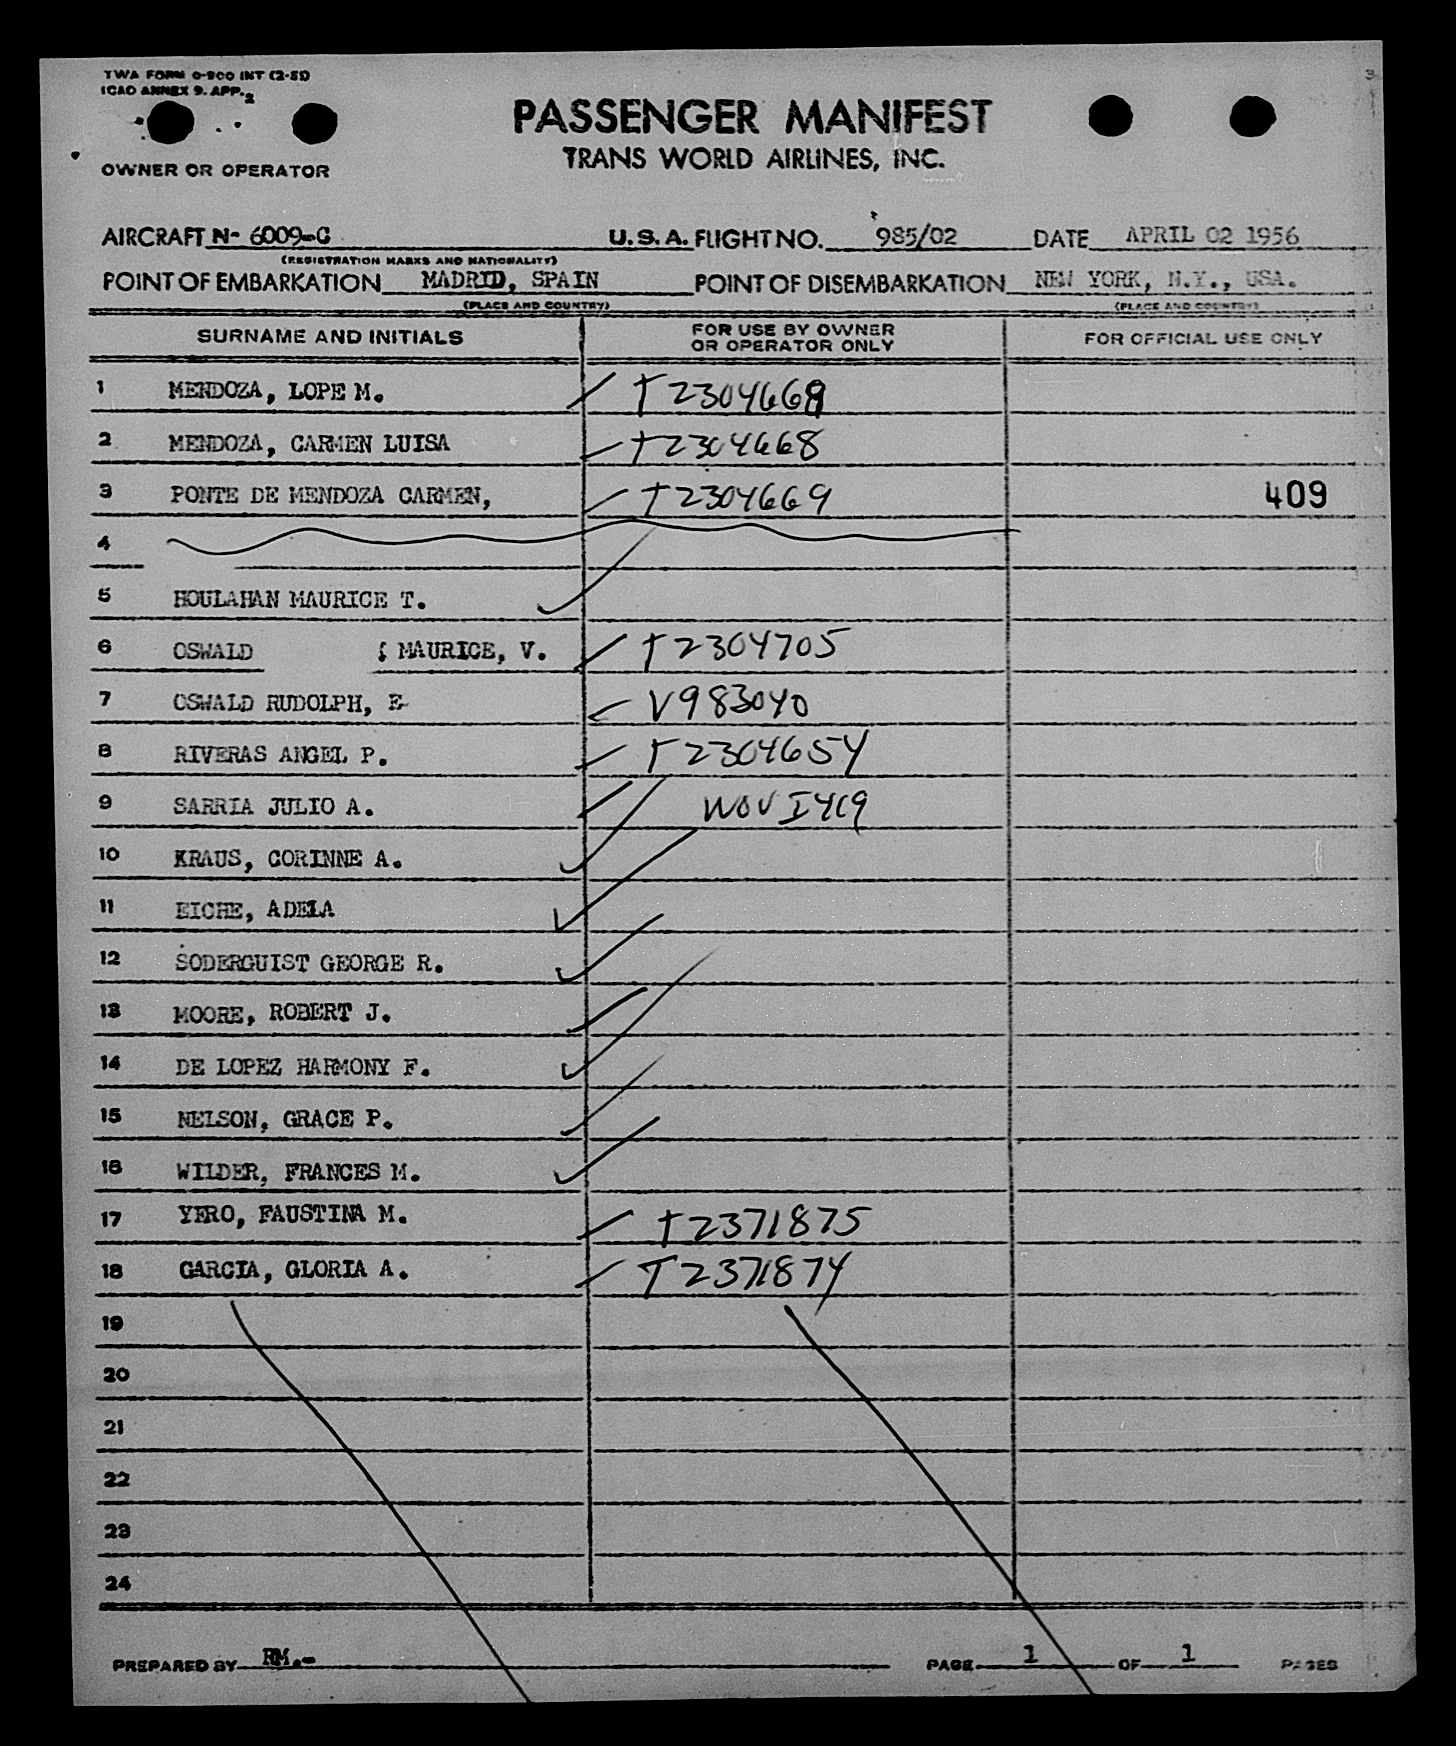 TWA FORM O-900 INT (2-51)
ICAO ANNEX 9. APP. 2
PASSENGER MANIFEST
TRANS WORLD AIRLINES, INC.
OWNER OR OPERATOR
AIRCRAFT N- 6009-C U.S.A. FLIGHT NO. 985/02 DATE APRIL 02 1956
(REGISTRATION MARKS AND NATIONALITY)
POINT OF EMBARKATION MADRID, SPAIN POINT OF DISEMBARKATION NEW YORK, N.Y., USA.
(PLACE AND COUNTRY) (PLACE AND COUNTRY)
SURNAME AND INITIALS FOR USE BY OWNER OR OPERATOR ONLY FOR OFFICIAL USE ONLY
1 MENDOZA, LOPE M. T2304669
2 MENDOZA, CARMEN LUISA T2304668
3 PONTE DE MENDOZA CARMEN, T2304669 409
4
5 HOULAHAN MAURICE T.
6 OSWALD MAURICE, V. T2304705
7 OSWALD RUDOLPH, E V983040
8 RIVERAS ANGEL P. T2304654
9 SARRIA JULIO A.
10 KRAUS, CORINNE A.
11 EICHE, ADELA
12 SODERGUIST GEORGE R.
13 MOORE, ROBERT J.
14 DE LOPEZ HARMONY F.
15 NELSON, GRACE P.
16 WILDER, FRANCES M.
17 YERO, FAUSTINA M. T2371875
18 GARCIA, GLORIA A. T2371874
19
20
21
22
23
24
PREPARED BY RM.- PAGE 1 OF 1 PAGES